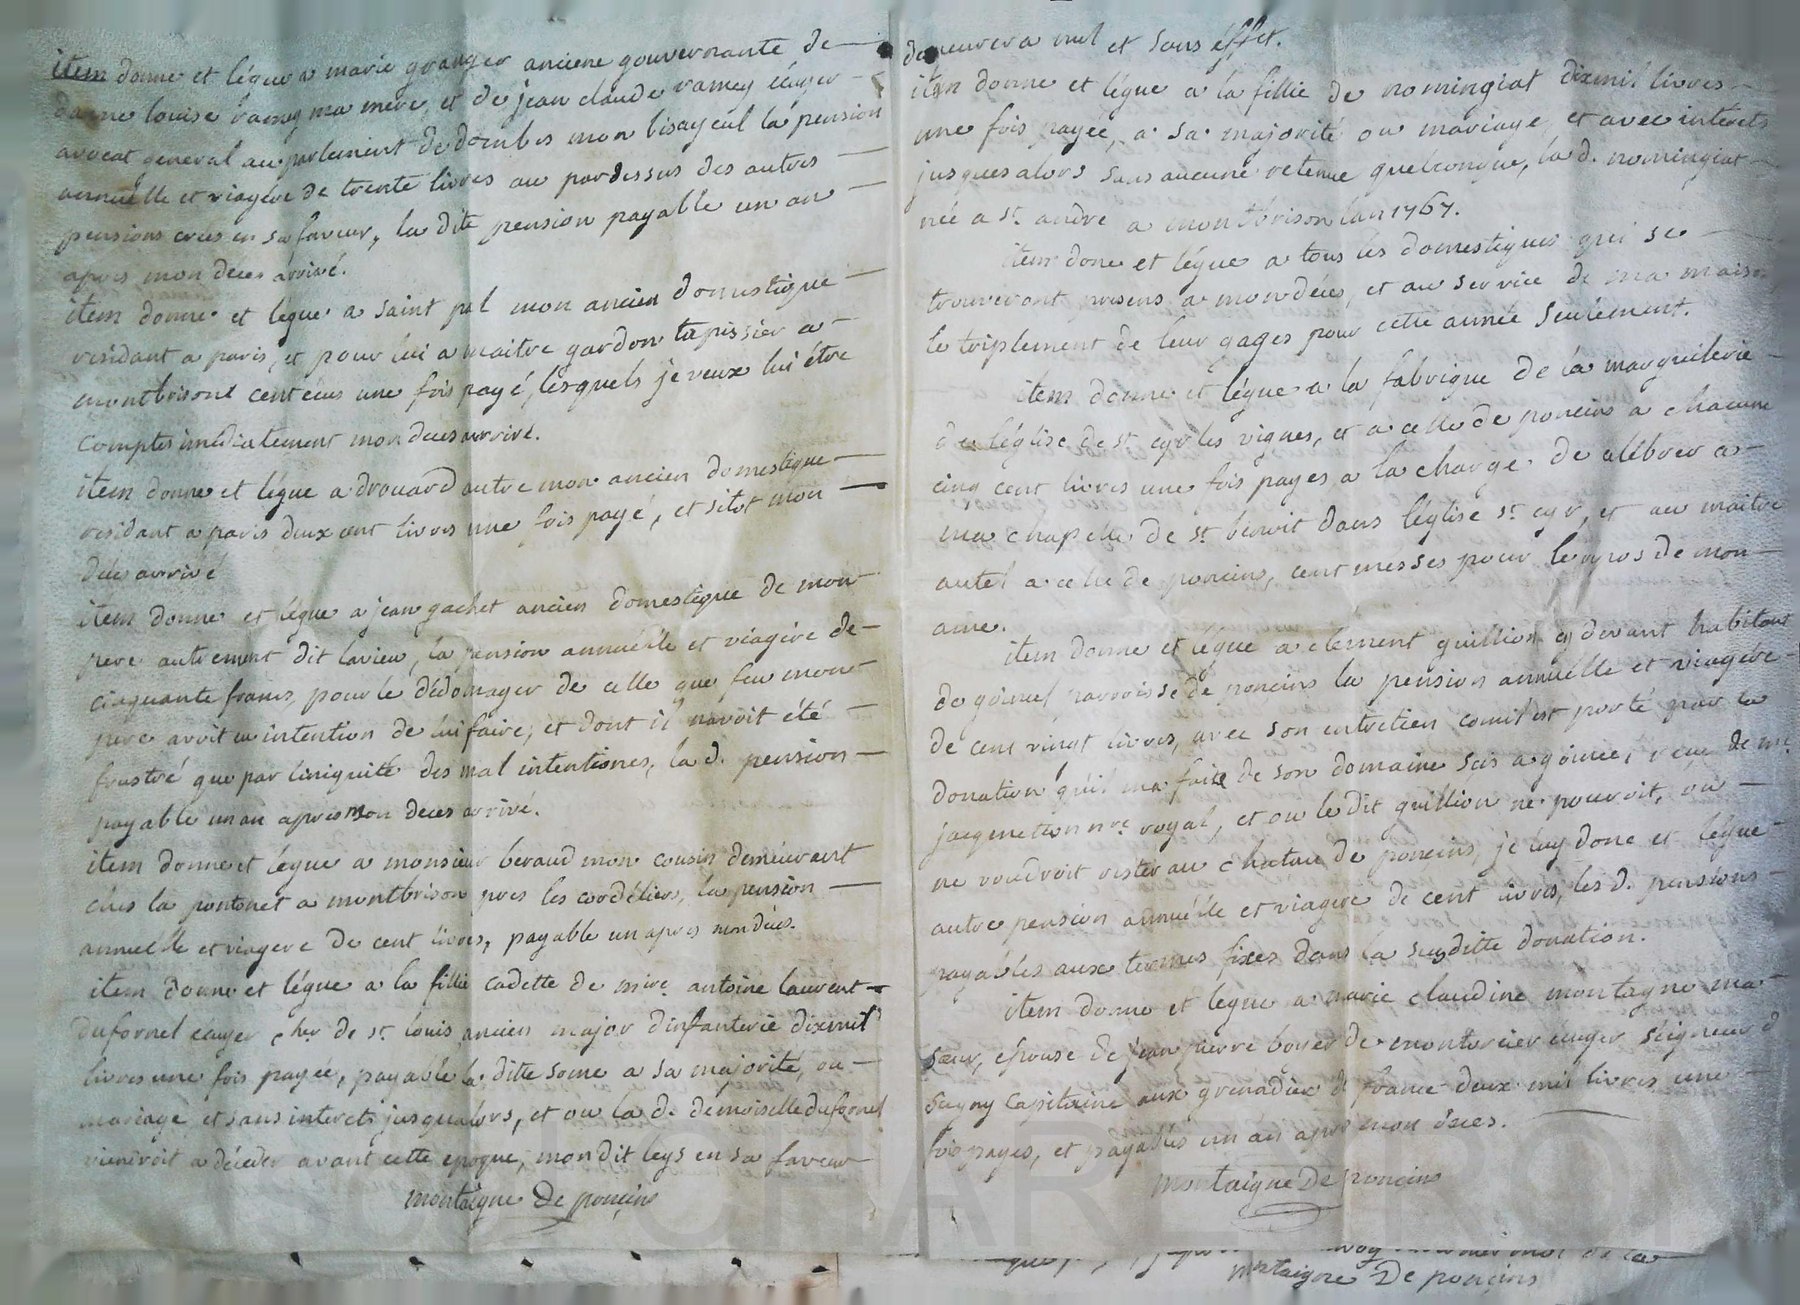 item donne et légue a marie granger anciene gouvernante de
dame louise ramey ma mere, et de jean claude ramey écuyer
avocat general au parlement de dombes mon bisayeul la pension
annuelle et viagere de trente livres au pardessus des autres
pensions crées en sa faveur, la dite pension payable un an
apres mon deces arrivé.
item donne et légue a saint pol mon ancien domestique
residant a paris, et pour lui a maitre gardon tapissier a
montbrison cent ecus une fois payé, lesquels je veux lui étre
comptés imediatement mon deces arrivé.
item donne et légue a drouard autre mon ancien domestique
residant a paris deux cent livres une fois payé, et sitot mon
deces arrivé
item donne et légue a jean gachet ancien domestique de mon
pere autrement dit lavieu, la pension annuélle et viagere de
cinquante francs, pour le dédomager de celle que feu mon
pere avoit eu intention de lui faire, et dont il n'avoit été
frustré que par l'iniquité des mal intentionés, la d. pension
payable un an apres mon deces arrivé.
item donne et legue a monsieur beraud mon cousin demeurant
chés la pontonet a montbrison pres les cordéliers, la pension
annuélle et viagere de cent livres, payable un apres mon décés.
item donne et légue a la fillie cadette de mire antoine laurent
dufornel ecuyer cher de st louis ancien major d'infanterie dixmil
livres une fois payée, payable la ditte some a sa majorité, ou
mariage et sans interets jusqualors, et ou la de demoiselle dufornel
viendroit a décéder avant cette epoque, mon dit legs en sa faveur
montaigne De poncins
demeurera nul et sans éffet.
item donne et légue a la fillie de nomingiat dixmil livres
une fois payée, a sa majorité ou mariage, et avec intérets
jusques alors sans aucune retenue quelconque, la d. nomingiat
née a st. andré a montbrison lan 1767.
item done et légue a tous les domestiques qui se
trouveront presens a mon déces, et au service de ma maison
le triplement de leur gages pour cette année seulement.
item donne et légue a la fabrique de la marguilerie
de l'église de st cyr les vignes, et a celle de poncins a chacune
cinq cent livres une fois payes a la charge de célébrer a
ma chapelle de st benoit dans l'église st cyr, et au maitre
autel a celle de poncins, cent messes pour le repos de mon
ame.
item donne et légue a clement guillion cy devant habitant
de goinel parroisse de poncins la pension annuélle et viagere
de cent vingt livres, avec son entretien comil est porté par la
donation qu'il ma faite de son domaine scis a goinel, reçue de me
jacqmetton nre royal, et ou le dit guillion ne pouroit, ou
ne voudroit rester au chateau de poncins, je luy done et légue
autre pension annuélle et viagere de cent livres, les d. pensions
payables aux termes fixés dans la susditte donation.
item donne et legue a marie claudine montagne ma
sœur, épouse de jean pierre boyer de montorcier écuyer séigneur d
sugny capitaine aux grenadier de france deux mil livres une
fois payes, et payables un an apres mon déces.
montaigne De poncins
montaigne De poncins